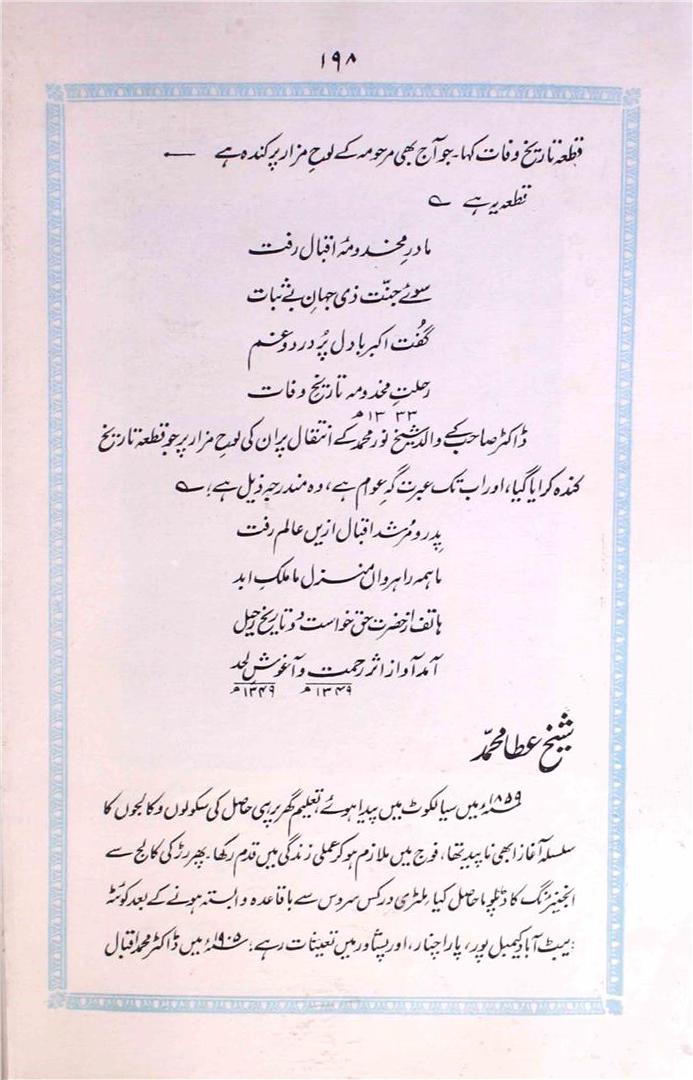 ۱۹۸
قطعۂ تاریخ وفات کہا۔ جو آج بھی مرحومہ کے لوحِ مزار پر کندہ ہے ۔
قطعہ یہ ہے ؎
مادرِ مخدومۂ اقبال رفت
سوئے جنّت ذی جہانِ بے ثبات
گفُت اکبر با دل پُر درد و غم
رحلتِ مخدومہ تاریخ وفات
۱۳۳۳ھ
ڈاکٹر صاحب کے والد شیخ نور محمد کے انتقال پر ان کی لوحِ مزار پر جو قطعۂ تاریخ
کندہ کرایا گیا، اور اب تک عبرت گہِ عوام ہے، وہ مندرجہ ذیل ہے؛ ؎
پدر و مُرشد اقبال ازیں عالم رفت
ما ہمہ راہرواں منزل ما ملکِ ابد
ہاتف از حضرت حق خواست دو تاریخ رحیل
آمد آواز اثر رحمت و آغوشِ لحد
۱۳۴۹ھ ۱۳۴۹ھ
شیخ عطا محمدؐ
۱۸۵۹ء میں سیالکوٹ میں پیدا ہوئے، تعلیم گھر پر ہی حاصل کی سکولوں و کالجوں کا
سلسلہ آغاز ابھی ناپید تھا، فوج میں ملازم ہو کر عملی زندگی میں قدم رکھا۔ پھر رڑکی کالج سے
انجینئرنگ کا ڈپلوما حاصل کیا، ملٹری ورکس سروس سے باقاعدہ وابستہ ہونے کے بعد کوئٹہ
ایبٹ آباد کیمبل پور، پارا چنار، اور پشاور میں تعینات رہے؛ ۱۹۰۵ء میں ڈاکٹر محمد اقبال